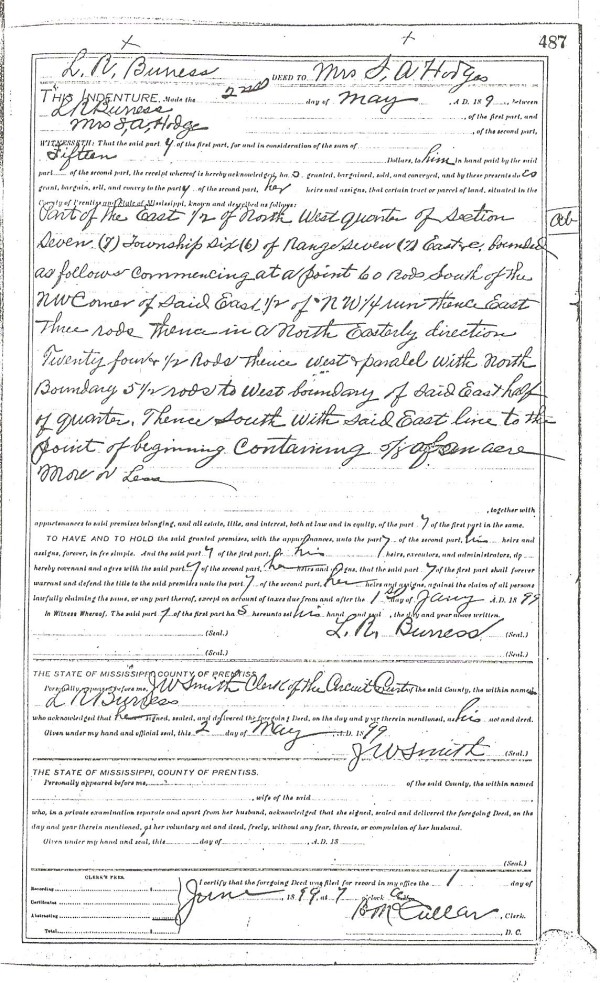 487
L. R. Burress DEED TO Mrs F. A. Hodges
THIS INDENTURE, Made the 2nd day of May, A. D. 189 , between
L R Burress, of the first part, and
Mrs F, A, Hodge, of the second part,
WITNESSETH: That the said part y of the first part, for and in consideration of the sum of
Fifteen Dollars, to him in hand paid by the said
part of the second part, the receipt whereof is hereby acknowledged, ha s granted, bargained, sold, and conveyed, and by these presents do es
grant, bargain, sell, and convey to the part y of the second part, her heirs and assigns, that certain tract or parcel of land, situated in the
County of Prentiss and State of Mississippi, known and described as follows:
Part of the East 1/2 of North West quarter of Section
Seven (7) Township Six (6) of Range Seven (7) East &c. bounded
as follows Commencing at a point 60 rods South of the
NW Corner of Said East 1/2 of NW 1/4 run thence East
Three rods Thence in a North Easterly direction
Twenty four 1/2 Rods Thence West & paralel With North
Boundary 5 1/2 rods to West boundary of Said East half
of quarter. Thence South With Said East line to the
point of beginning Containing 5/8 of an acre
More or Less
, together with
appurtenances to said premises belonging, and all estate, title, and interest, both at law and in equity, of the part y of the first part in the same.
TO HAVE AND TO HOLD the said granted premises, with the appurtenances, unto the part y of the second part, his heirs and
assigns, forever, in fee simple. And the said part y of the first part, for his heirs, executors, and administrators, do
hereby covenant and agree with the said part y of the second part, her heirs and assigns, that the said part y of the first part shall forever
warrant and defend the title to the said premises unto the part y of the second part, her heirs and assigns, against the claim of all persons
lawfully claiming the same, or any part thereof, except on amount of taxes due from and after the 1st day of Jany A. D. 1899
In Witness Whereof, The said part y of the first part ha s hereunto set his hand and seal , the day and year above written.
L. R. Burress (Seal.)
(Seal.) (Seal.)
(Seal.) (Seal.)
THE STATE OF MISSISSIPPI, COUNTY OF PRENTISS.
Personally appeared before me, J W Smith Clerk of the Circuit Court of the said County, the within named
L R Burress
who acknowledged that he signed, sealed, and delivered the foregoing Deed, on the day and year therein mentioned, as his act and deed.
Given under my hand and official seal, this 2 day of May A. D. 1899
J W Smith (Seal.)
THE STATE OF MISSISSIPPI, COUNTY OF PRENTISS.
Personally appeared before me, of the said County, the within named
, wife of the said
who, in a private examination separate and apart from her husband, acknowledged that she signed, sealed and delivered the foregoing Deed, on the
day and year therein mentioned, as her voluntary act and deed, freely, without any fear, threats, or compulsion of her husband.
Given under my hand and seal, this day of , A. D. 18
(Seal.)
CLERK'S FEES.
Recording $
Certificates
Abstracting
Total $
I certify that the foregoing Deed was filed for record in my office the 1 day of
June, 1899, at 7 o'clock
McCullar, Clerk.
D. C.